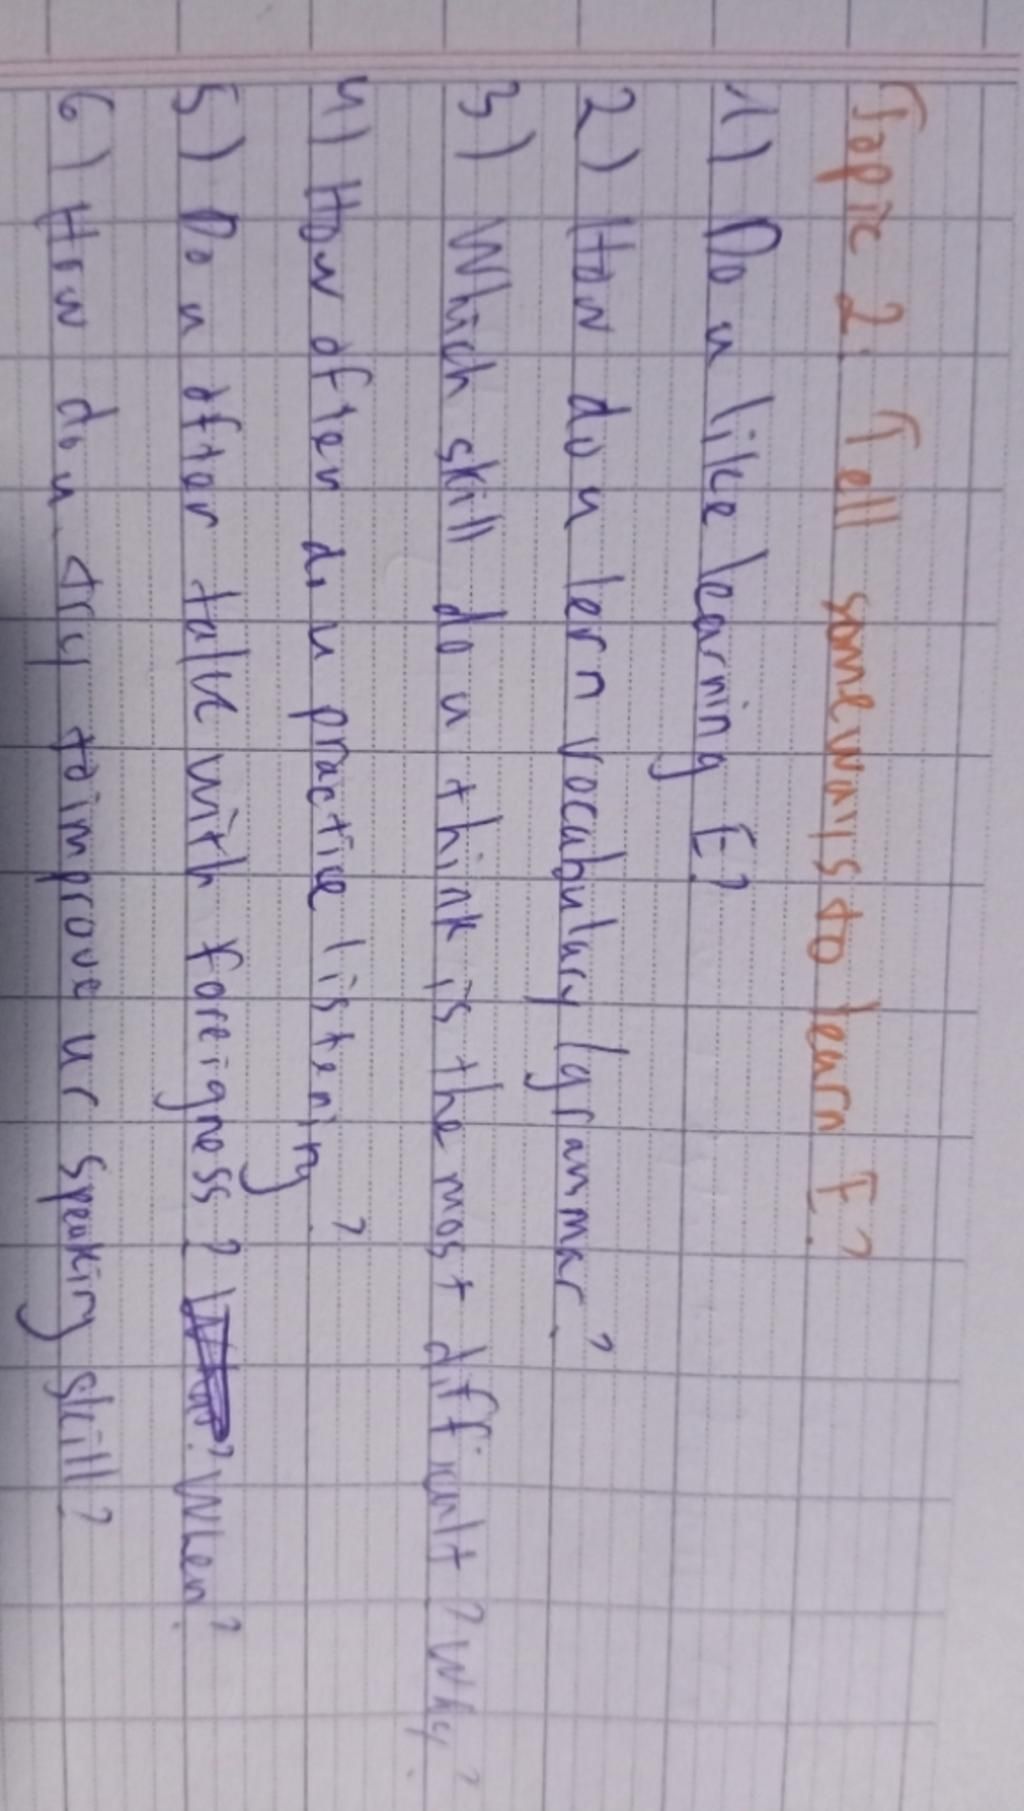 Topic 2: Tell some ways to learn E?
1) Do u like learning E?
2) How do u lern vocabulary / grammar?
3) Which skill do u think is the most difficult? Why?
4) How often do u practice listening?
5) Do u often talk with foreigness? When?
6) How do u try to improve ur speaking skill?